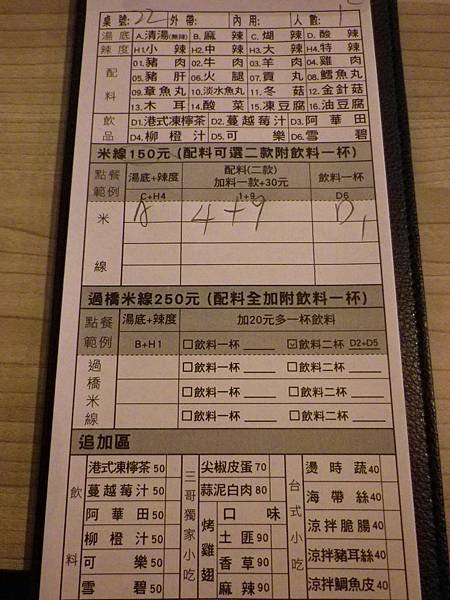 桌號: 22 外帶: 內用: 人數: 1
湯底 A.清湯(無辣) B.麻辣 C.煳辣 D.酸辣
辣度 H1.小辣 H2.中辣 H3.大辣 H4.特辣
配料 01.豬肉 02.牛肉 03.羊肉 04.雞肉
05.豬肝 06.火腿 07.貢丸 08.鱈魚丸
09.章魚丸 10.淡水魚丸 11.冬菇 12.金針菇
13.木耳 14.酸菜 15.凍豆腐 16.油豆腐
飲品 D1.港式凍檸茶 D2.蔓越莓汁 D3.阿華田
D4.柳橙汁 D5.可樂 D6.雪碧
米線150元 (配料可選二款附飲料一杯)
點餐範例 湯底+辣度 配料(二款) 加料一款+30元 飲料一杯
C+H4 1+9 D6
米線 A 4+9 D1
過橋米線250元 (配料全加附飲料一杯)
點餐範例 湯底+辣度 加20元多一杯飲料
B+H1 飲料一杯 飲料二杯 D2+D5
過橋米線 飲料一杯 飲料二杯
飲料一杯 飲料二杯
飲料一杯 飲料二杯
追加區
飲料 港式凍檸茶50 三哥獨家小吃 尖椒皮蛋70 台式小吃 燙時蔬40
蔓越莓汁50 蒜泥白肉80 海帶絲40
阿華田50 烤雞翅 口味 涼拌脆腸40
柳橙汁50 土匪90 涼拌豬耳絲40
可樂50 香草90 涼拌鯛魚皮40
雪碧50 麻辣90